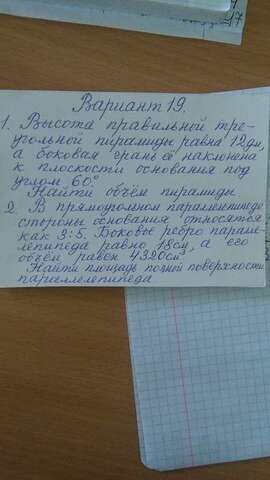 Вариант 19.
1. Высота правильной тре-
угольной пирамиды равна 12 дм,
а боковая грань её наклонена
к плоскости основания под
углом 60°
Найти объём пирамиды
2. В прямоугольном параллелепипеде
стороны основания относятся
как 3:5. Боковое ребро парал-
лелепипеда равно 18см, а его
объём равен 4320см³
Найти площадь полной поверхности
параллелепипеда